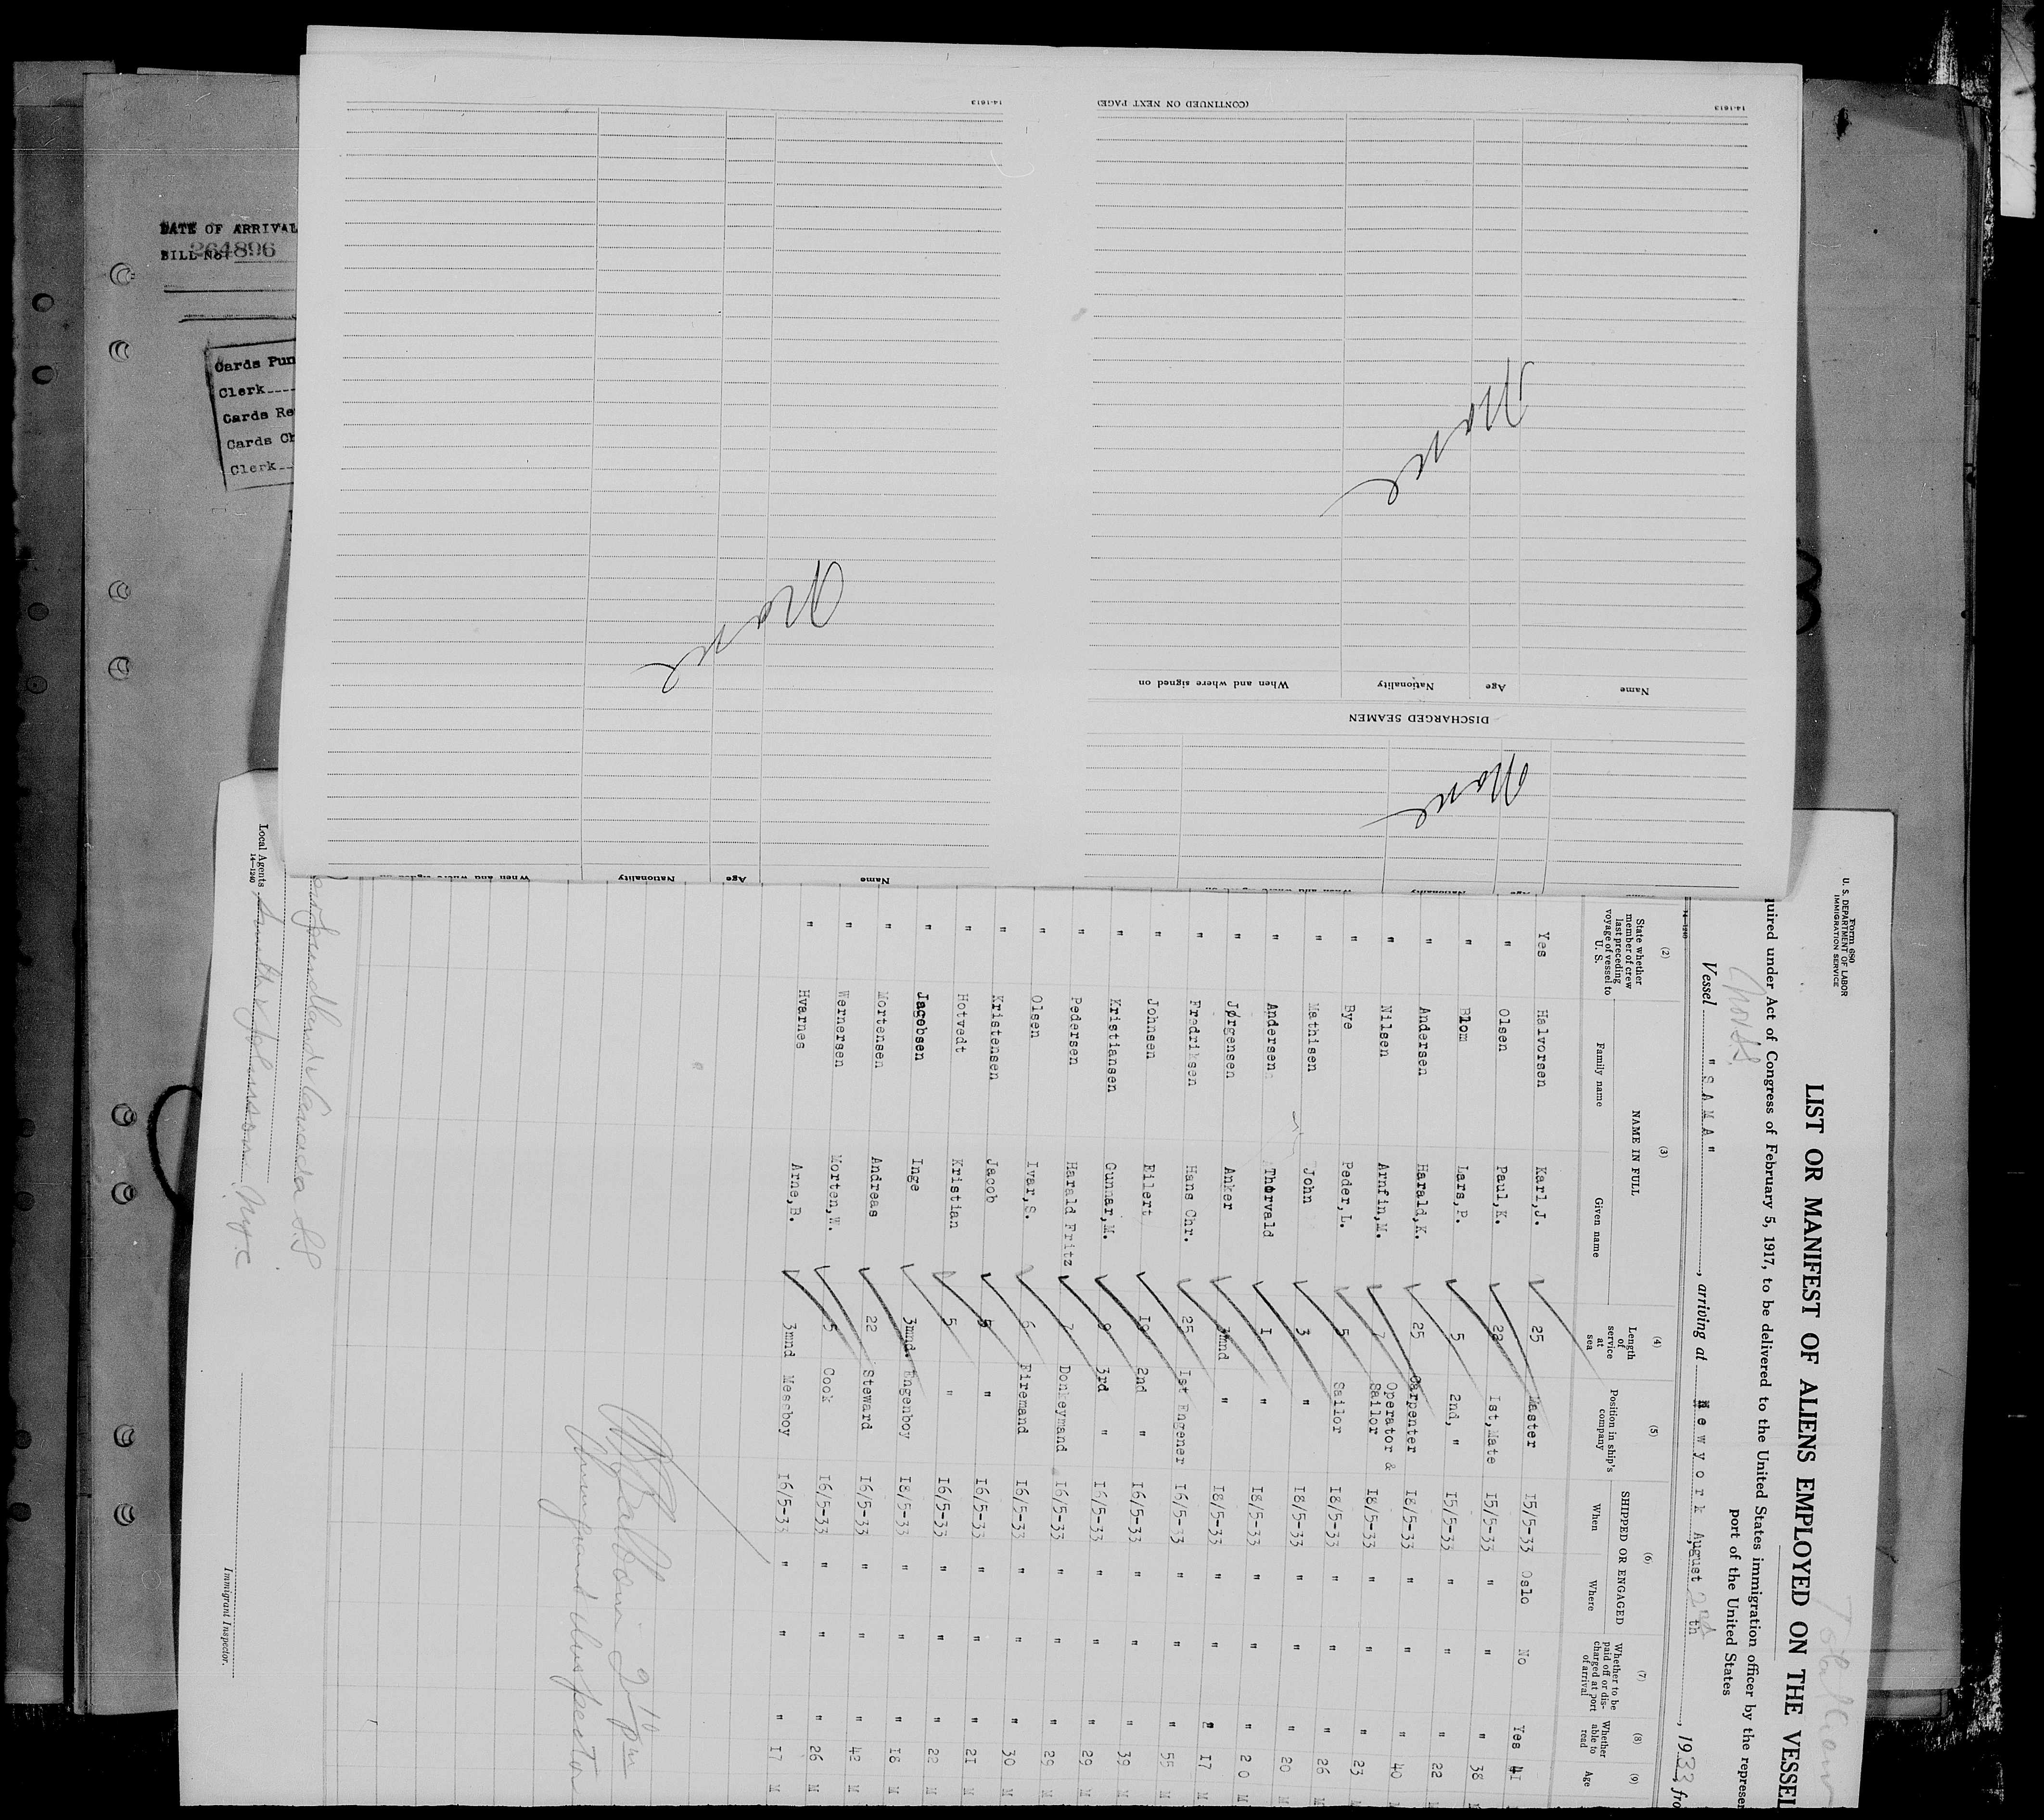 DATE OF ARRIVAL
BILL NO. 264896
Cards Pun
Clerk
Cards Re
Cards Ch
Clerk
14-1613
(CONTINUED ON NEXT PAGE)
14-1613
None
None
Name Age Nationality When and where signed on
DISCHARGED SEAMEN
None
Name Age Nationality When and where signed on
Form 680
U. S. DEPARTMENT OF LABOR
IMMIGRATION SERVICE
LIST OR MANIFEST OF ALIENS EMPLOYED ON THE VESSEL
quired under Act of Congress of February 5, 1917, to be delivered to the United States immigration officer by the represen
port of the United States
Vessel "SAMA", arriving at Newyork August 2nd th, 1933, fro
14-1240
(2) (3) (4) (5) (6) (7) (8) (9)
State whether member of crew last preceding voyage of vessel to U. S. NAME IN FULL Family name Given name Length of service at sea Position in ship's company SHIPPED OR ENGAGED When Where Whether to be paid off or discharged at port of arrival Whether able to read Age
Yes Halvorsen Karl,J. 25 Master 15/5-33 Oslo No Yes 41
" Olsen Paul,K. 22 Ist,Mate 15/5-33 " " " 38 M
" Blom Lars,P. 5 2nd, " 15/5-33 " " " 22 M
" Andersen Harald,K. 25 Carpenter 18/5-33 " " " 40 M
" Nilsen Arnfin,M. 7 Operator & Sailor 18/5-33 " " " 23 M
" Bye Peder,L. 5 Sailor 18/5-33 " " " 26 M
" Mathisen John 3 " 18/5-33 " " " 20 M
" Andersen Thorvald I " 18/5-33 " " " 20 M
" Jørgensen Anker 3mnd " 18/5-33 " " " 17 M
" Fredriksen Hans Chr. 25 Ist Engener 16/5-33 " " " 55 M
" Johnsen Eilert 19 2nd " 16/5-33 " " " 39 M
" Kristiansen Gunnar,M. 9 3rd " 16/5-33 " " " 29 M
" Pedersen Harald Fritz 7 Donkeymand 16/5-33 " " " 29 M
" Olsen Ivar,S. 6 Firemand 16/5-33 " " " 30 M
" Kristensen Jacob 5 " 16/5-33 " " " 21 M
" Hotvedt Kristian 5 " 16/5-33 " " " 22 M
" Jacobsen Inge 3mnd. Engenboy 18/5-33 " " " 18 M
" Mortensen Andreas 22 Steward 16/5-33 " " " 42 M
" Wernersen Morten,W. 5 Cook 16/5-33 " " " 26 M
" Hvarnes Arne,B. 3mnd Messboy 16/5-33 " " " 17 M
Immigrant Inspector
Local Agents Smith & Johnson N.Y.C
14-1240
Immigrant Inspector.